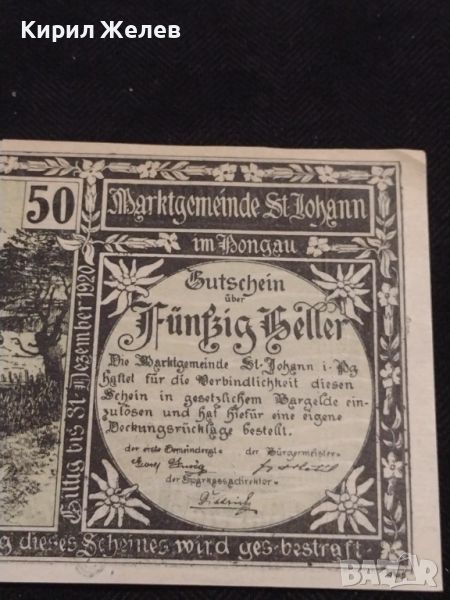 Кирил Желев
50
Marktgemeinde St. Johann
im Pongau
Gültig bis 31. Dezember 1920
Gutschein
über
Fünfzig Heller
Die Marktgemeinde St. Johann i. Pg.
haftet für die Verbindlichkeit diesen
Schein in gesetzlichem Bargelde ein-
zulösen und hat hiefür eine eigene
Deckungsrücklage bestellt.
der erste Gemeinderat: der Bürgermeister:
der Sparkassadirektor:
g dieses Scheines wird ges. bestraft.
bazar